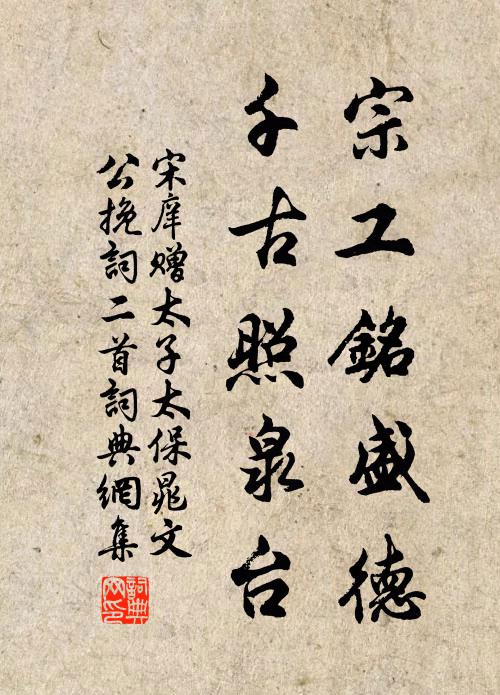 宗工銘盛德
千古照泉台
宋庠贈太子太保晁文
公挽詞二首詞典網集
詞典
网印